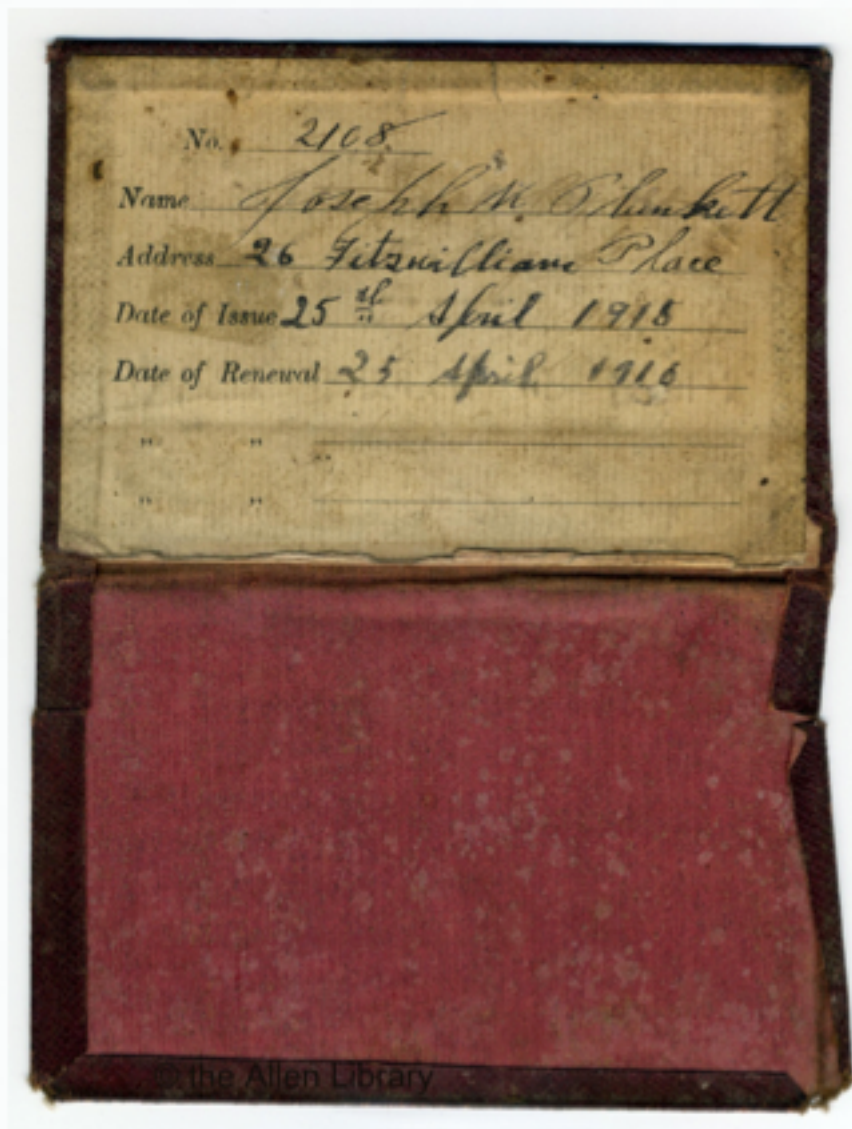 No. 2108
Name Joseph M. Plunkett
Address 26 Fitzwilliam Place
Date of Issue 25th April 1915
Date of Renewal 25 April 1916
" "
" "
© the Allen Library